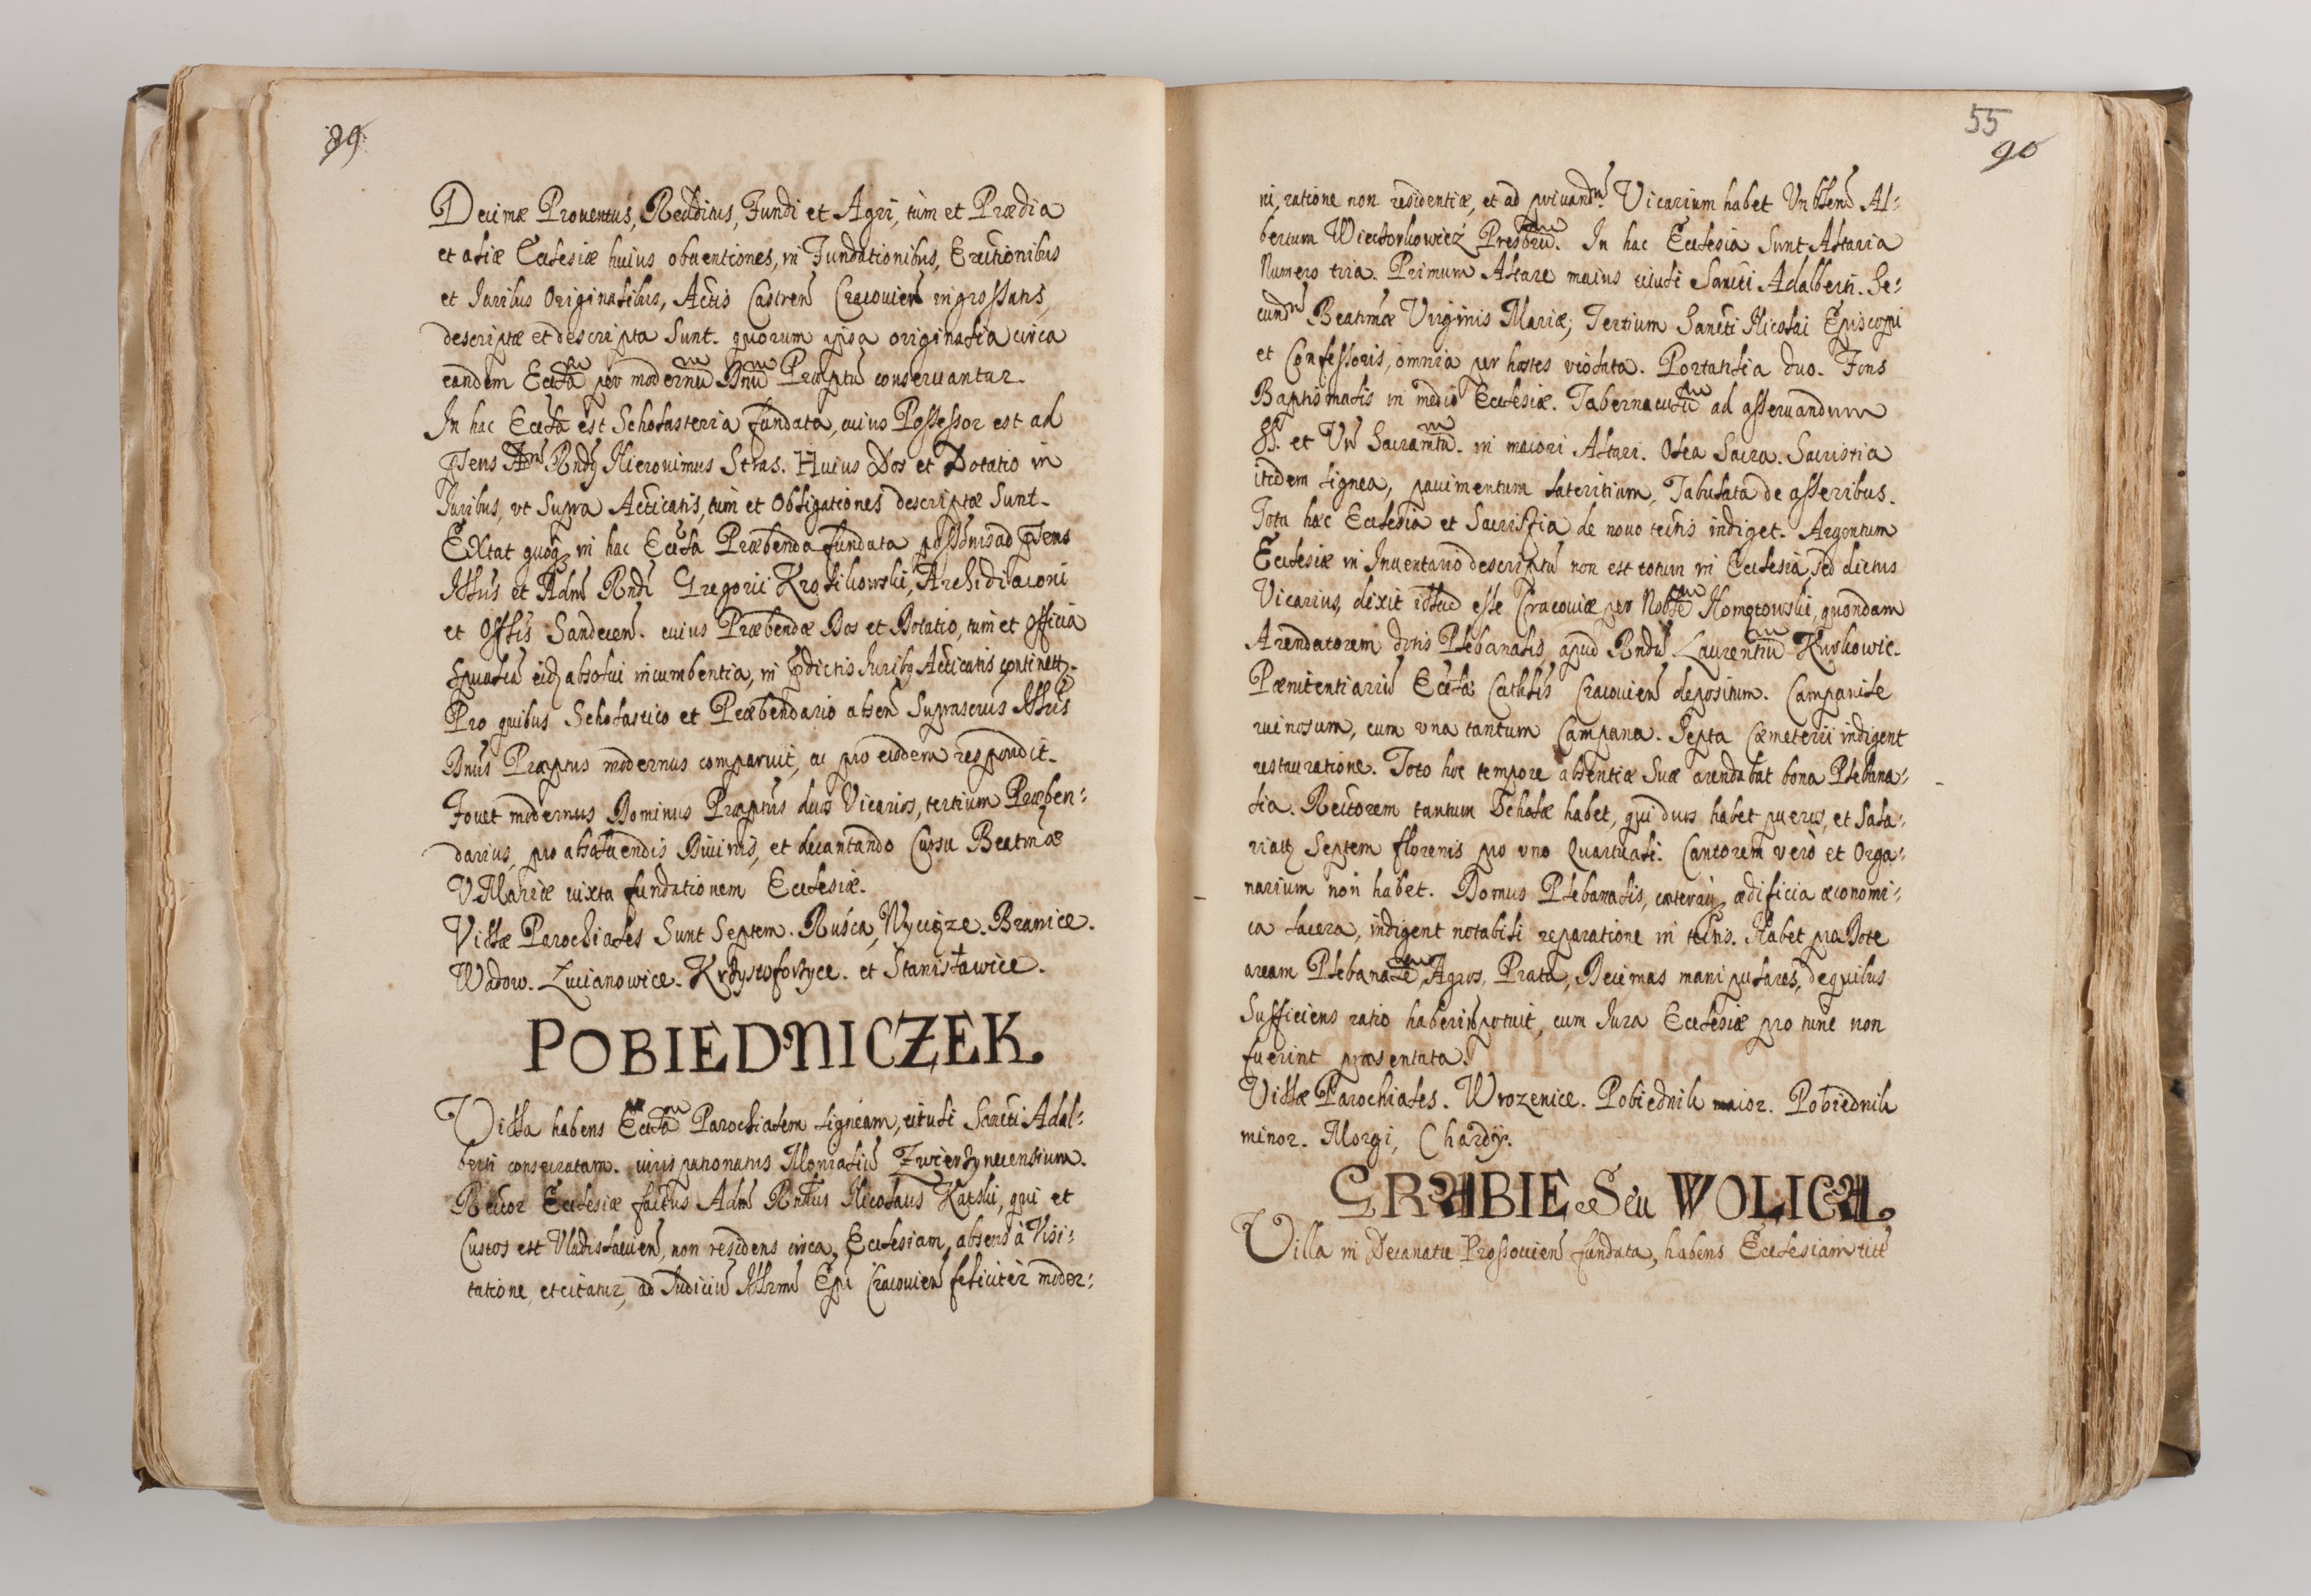 89.
Decimæ Prouentus, Redditus, Fundi et Agri, tùm et Prædia
et aliæ Ecclesiæ huius obuentiones, in Fundationibus, Erectionibus
et Iuribus Originalibus, Actis Castren̄ Cracouien̄ ingrossatis,
descriptæ et descripta Sunt. quorum ipsa originalia circa
eandem Eccl̄am per modernū Dn̄um Præptū conseruantur.
In hac Eccl̄a est Scholasteria fundata, cuius Possessor est ad
p̄sens Adm̄ Rnd9 Hieronimus Stras. Huius Dos et Dotatio in
Iuribus, vt Supra Acticatis, tùm et Obligationes descriptæ Sunt.
Extat quoq3 in hac Eccl̄a Præbenda fundata poss̄ionis ad p̄sens
Illris et Adm̄ Rnd̄i Gregorii Krolikowski, Archidiaconi
et Offlis Sandecen̄. cuius Præbendæ Dos et Dotatio, tùm et Officia
Spualia eidē absolui incumbentia, in p̄dictis Iurib9 Acticatis continentr.
Pro quibus Scholastico et Præbendario absen̄ Suprascrus Illris
Dnus Præptus modernus comparuit, ac pro eisdem respondit.
Fouet modernus Dominus Præptus duos Vicarios, tertium Præben:
darius, pro absoluendis Diuinis, et decantando Cursu Beatmæ
V Mariæ iuxta fundationem Ecclesiæ.
Villæ Parochiales Sunt Septem. Rusca, Wyciąze. Branice.
Wadow. Lucianowice. Krzysztoforzyce. et Stanisławice.
POBIEDNICZEK.
Villa habens Eccl̄am Parochialem ligneam, tituli Sancti Adal:
berti consecratam. iuris patronatus Monialiū Zwierzynecensium.
Rector Ecclesiæ factus Adm̄ Rndus Nicolaus Katski, qui et
Custos est Vladislauien̄, non residens circa Ecclesiam, absens à Visi:
tatione, et citatur, ad Iudiciū Illrmi Epi Cracouien̄ feliciter moder:
55
90
ni, ratione non residentiæ, et ad priuandm̄. Vicarium habet Vnblem̄ Al:
bertum Wiectorkowicz Presbrum. In hac Ecclesia Sunt Altaria
Numero tria. Primum Altare maius tituli Sancti Adalberti. Se:
cundm̄ Beatmæ Virginis Mariæ; Tertium Sancti Nicolai Episcopi
et Confessoris, omnia per hostes violata. Portatilia duo. Fons
Baptismalis in medio Ecclesiæ. Tabernaculū ad asseruandum
SS. et Vn̄ Sacramtū. in maiori Altari. Olea Sacra. Sacristia
itidem lignea, pauimentum lateritium, Tabulata de asseribus.
Tota hæc Ecclesia et Sacristia de nouo tectis indiget. Argentum
Ecclesiæ in Inuentario descriptū non est totum in Ecclesia, sed dictus
Vicarius, dixit illud esse Cracouiæ per Noblē Komętowski, quondam
Arendatorem dotis Plebanalis, apud Rndū Laurentiū Kuskowic.
Pænitentiariū Eccl̄æ Cathlis Cracouien̄ depositum. Campanile
ruinosum, cum vna tantum Campana. Septa Cæmeterii indigent
restauratione. Toto hoc tempore absentiæ Suæ arendabat bona Plebana:
lia. Rectorem tantum Scholæ habet, qui duos habet pueros, et Sala:
riatr Septem florenis pro vno Quartuali. Cantorem verò et Orga:
narium non habet. Domus Plebanalis, cæteraq3 ædificia œconomi:
ca lacera, indigent notabili reparatione in tectis. Habet pro Dote
aream Plebanalē, Agros, Prata, Decimas manipulares, de quibus
Sufficiens ratio haberi n̄ potuit, cum Iura Ecclesiæ pro tunc non
fuerint præsentata.
Villæ Parochiales. Wrozenice. Pobiednik maior. Pobiednik
minor. Morgi, Chardÿ.
GRABIE Seu WOLICA.
Villa in Decanatu Prossouien̄ fundata, habens Ecclesiam titl̄